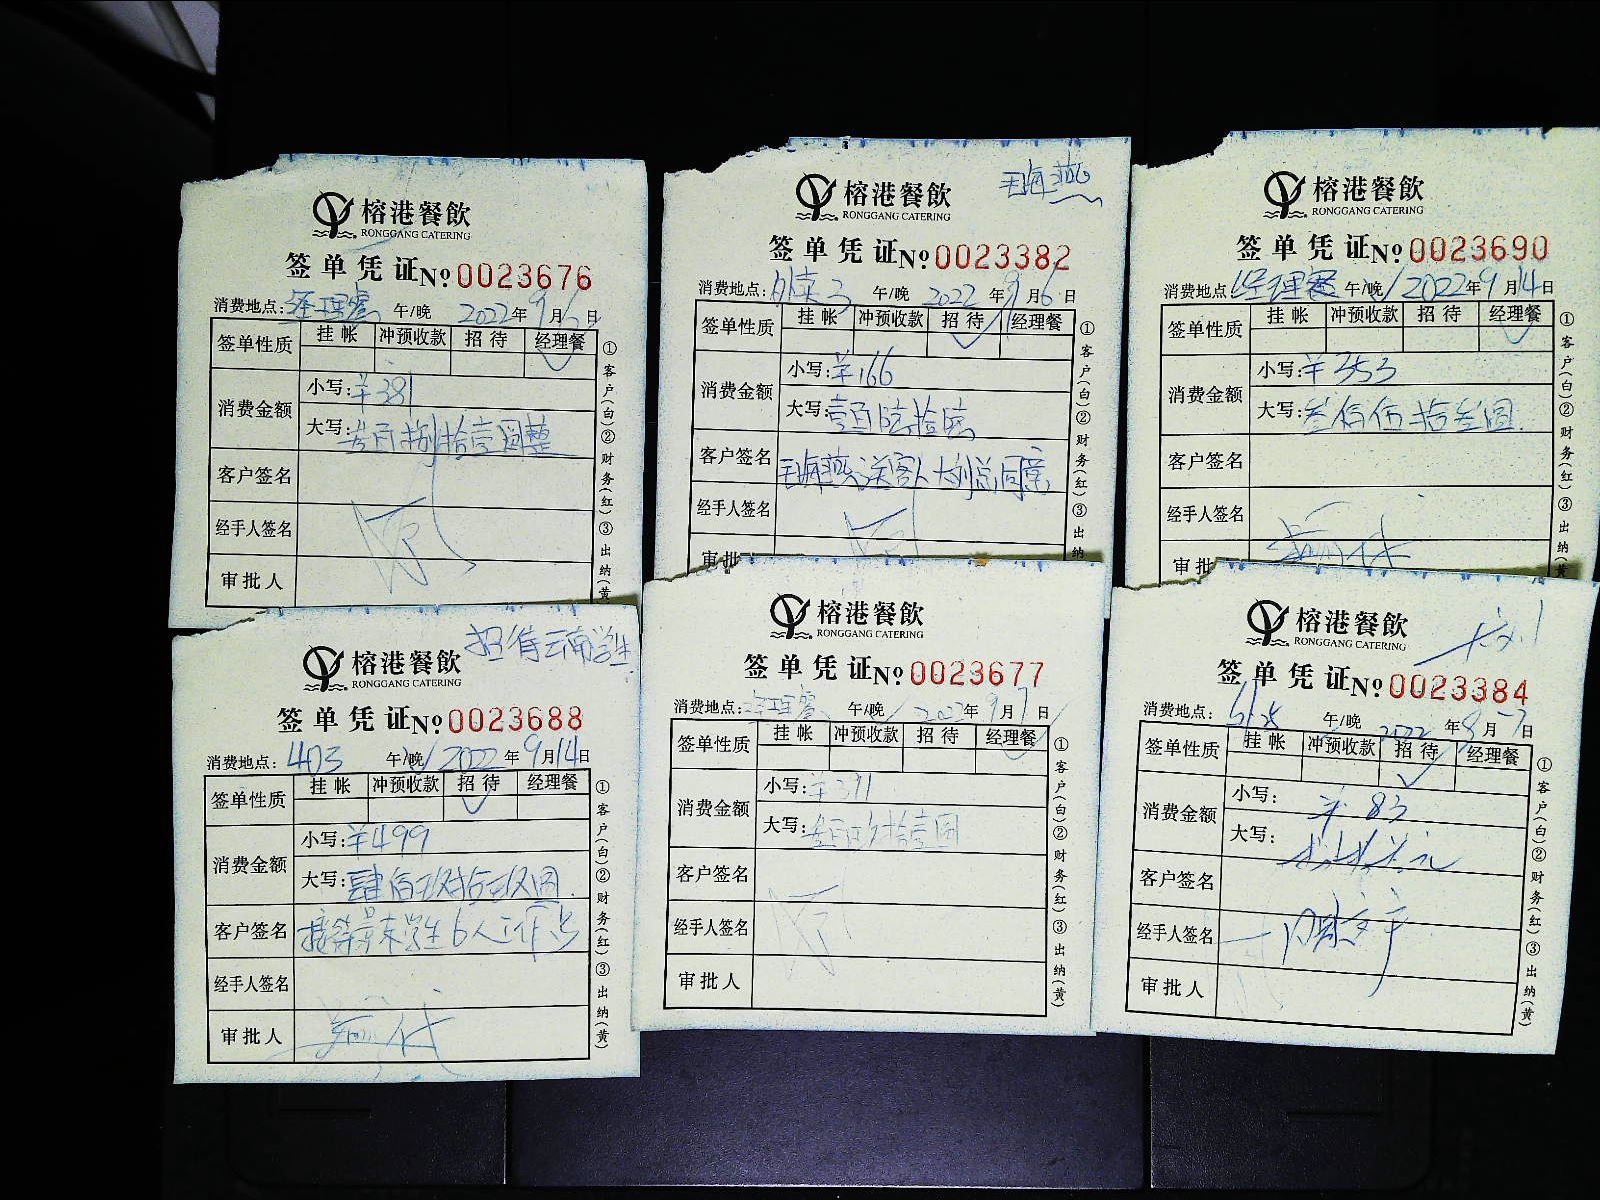 榕港餐飲
RONGGANG CATERING
签单凭证 № 0023676
消费地点: 经理餐 午/晚 2022年9月6日
签单性质 挂帐 冲预收款 招待 经理餐
消费金额 小写: ¥381
大写: 叁百捌拾壹圆整
客户签名
经手人签名
审批人
①客户(白)②财务(红)③出纳(黄
王海燕
榕港餐飲
RONGGANG CATERING
签单凭证 № 0023382
消费地点: 外卖3 午/晚 2022年9月6日
签单性质 挂帐 冲预收款 招待 经理餐
消费金额 小写: ¥166
大写: 壹百陆拾陆
客户签名 王海燕送客人 刘总同意
经手人签名
审批
①客户(白)②财务(红)③出纳
榕港餐飲
RONGGANG CATERING
签单凭证 № 0023690
消费地点: 经理餐 午/晚 2022年9月14日
签单性质 挂帐 冲预收款 招待 经理餐
消费金额 小写: ¥353
大写: 叁佰伍拾叁圆
客户签名
经手人签名
审批
①客户(白)②财务(红)③出纳(黄
招待云南学生
榕港餐飲
RONGGANG CATERING
签单凭证 № 0023688
消费地点: 403 午/晚 2022年9月14日
签单性质 挂帐 冲预收款 招待 经理餐
消费金额 小写: ¥499
大写: 肆佰玖拾玖圆
客户签名 学生6人工作
经手人签名
审批人
①客户(白)②财务(红)③出纳(黄)
榕港餐飲
RONGGANG CATERING
签单凭证 № 0023677
消费地点: 经理餐 午/晚 2022年9月7日
签单性质 挂帐 冲预收款 招待 经理餐
消费金额 小写:
大写:
客户签名
经手人签名
审批人
①客户(白)②财务(红)③出纳(黄)
榕港餐飲
RONGGANG CATERING
签单凭证 № 0023384
消费地点: 午/晚 2022年9月7日
签单性质 挂帐 冲预收款 招待 经理餐
消费金额 小写: ¥83
大写: 捌拾叁元
客户签名
经手人签名
审批人
①客户(白)②财务(红)③出纳(黄)